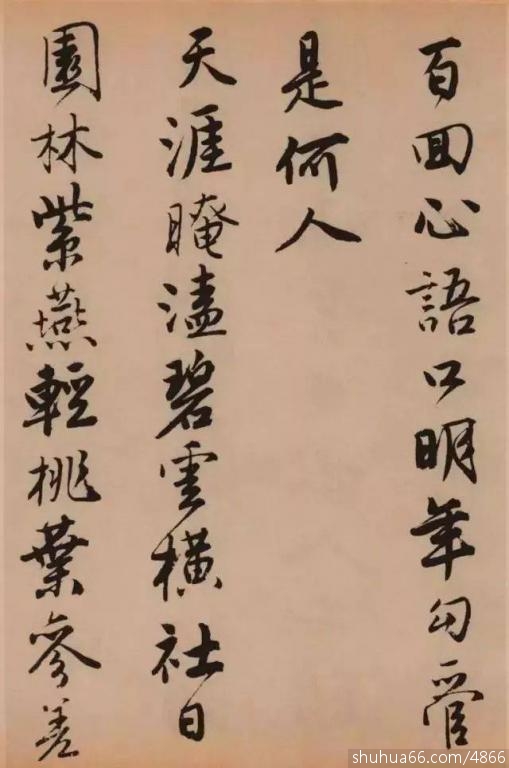 百回心語口明年勾管
是何人
天涯晻溘碧雲橫社日
園林紫燕輕桃葉參差
shuhua66.com/4866